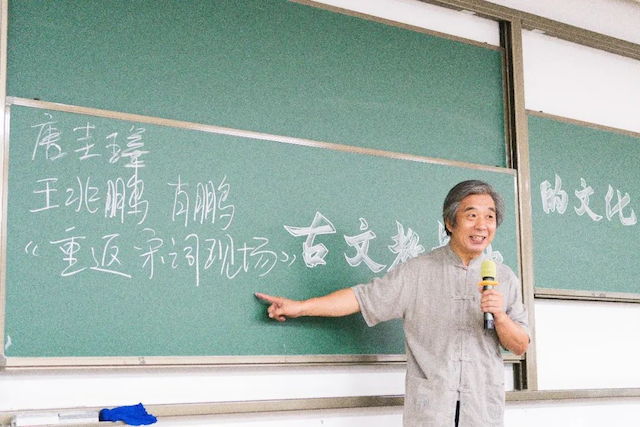 唐圭璋
王兆鹏 肖鹏
《重返宋词现场》
古文教
的文化